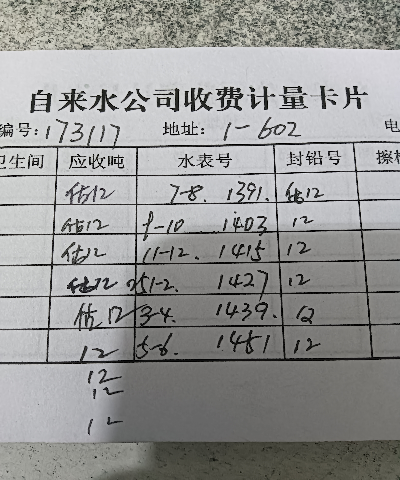 自来水公司收费计量卡片
编号:173117 地址:1-602 电
卫生间 应收吨 水表号 封铅号 擦
估12 7-8. 1391. 估12
估12 9-10 1403 12
估12 11-12. 1415 12
估12 251-2. 1427 12
估12 3-4. 1439. 12
12 5-6. 1451 12
12
12
12